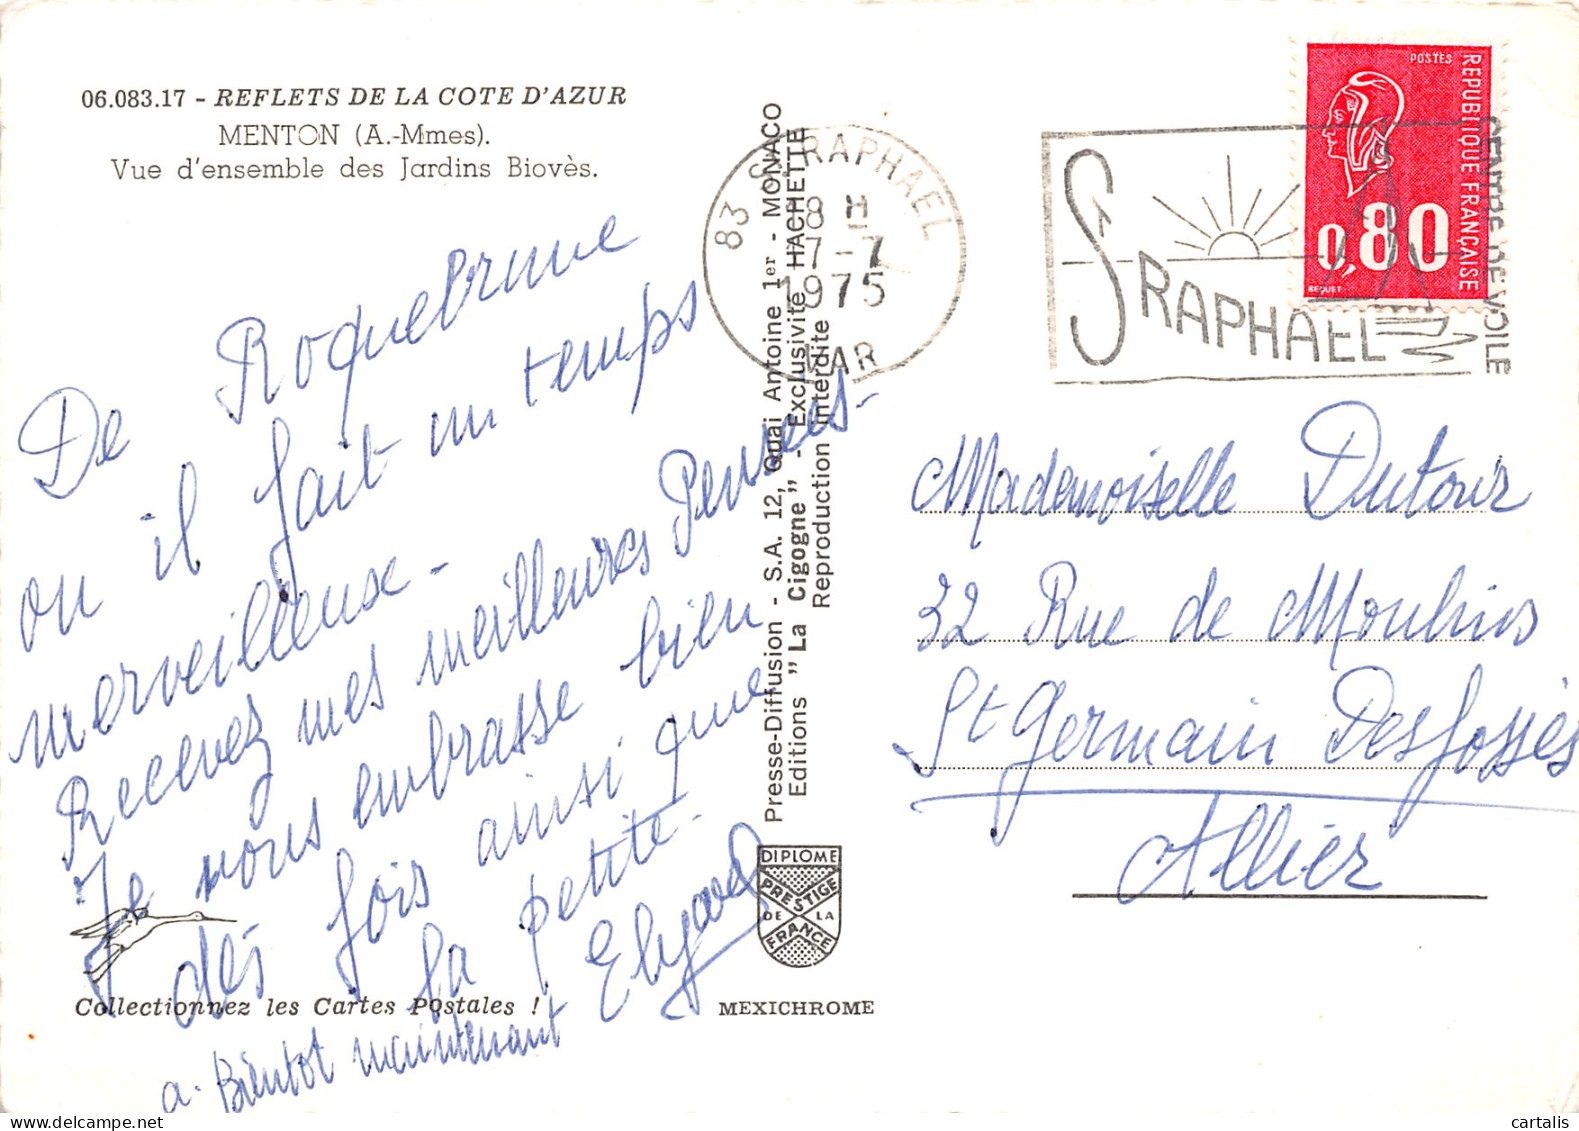 06.083.17 - REFLETS DE LA COTE D'AZUR
MENTON (A.-Mmes).
Vue d'ensemble des Jardins Biovès.
De Roquebrune
ou il fait un temps
merveilleuse -
Recevez mes meilleures Pensées -
Je vous embrasse bien
dés fois ainsi que
la petite.
a. Bientot maintenant
Collectionnez les Cartes Postales !
Presse-Diffusion - S.A. 12, Quai Antoine 1er - MONACO
Editions "La Cigogne" - Exclusivité HACHETTE
Reproduction interdite
DIPLOME
PRESTIGE
DE LA
FRANCE
MEXICHROME
83 ST RAPHAEL
18 H
7-7
1975
VAR
ST RAPHAEL
CENTRE DE VOILE
POSTES
REPUBLIQUE FRANÇAISE
0,80
BEQUET
Mademoiselle Dutour
32 Rue de Moulins
St Germain Desfossés
Allier
cartalis
www.delcampe.net